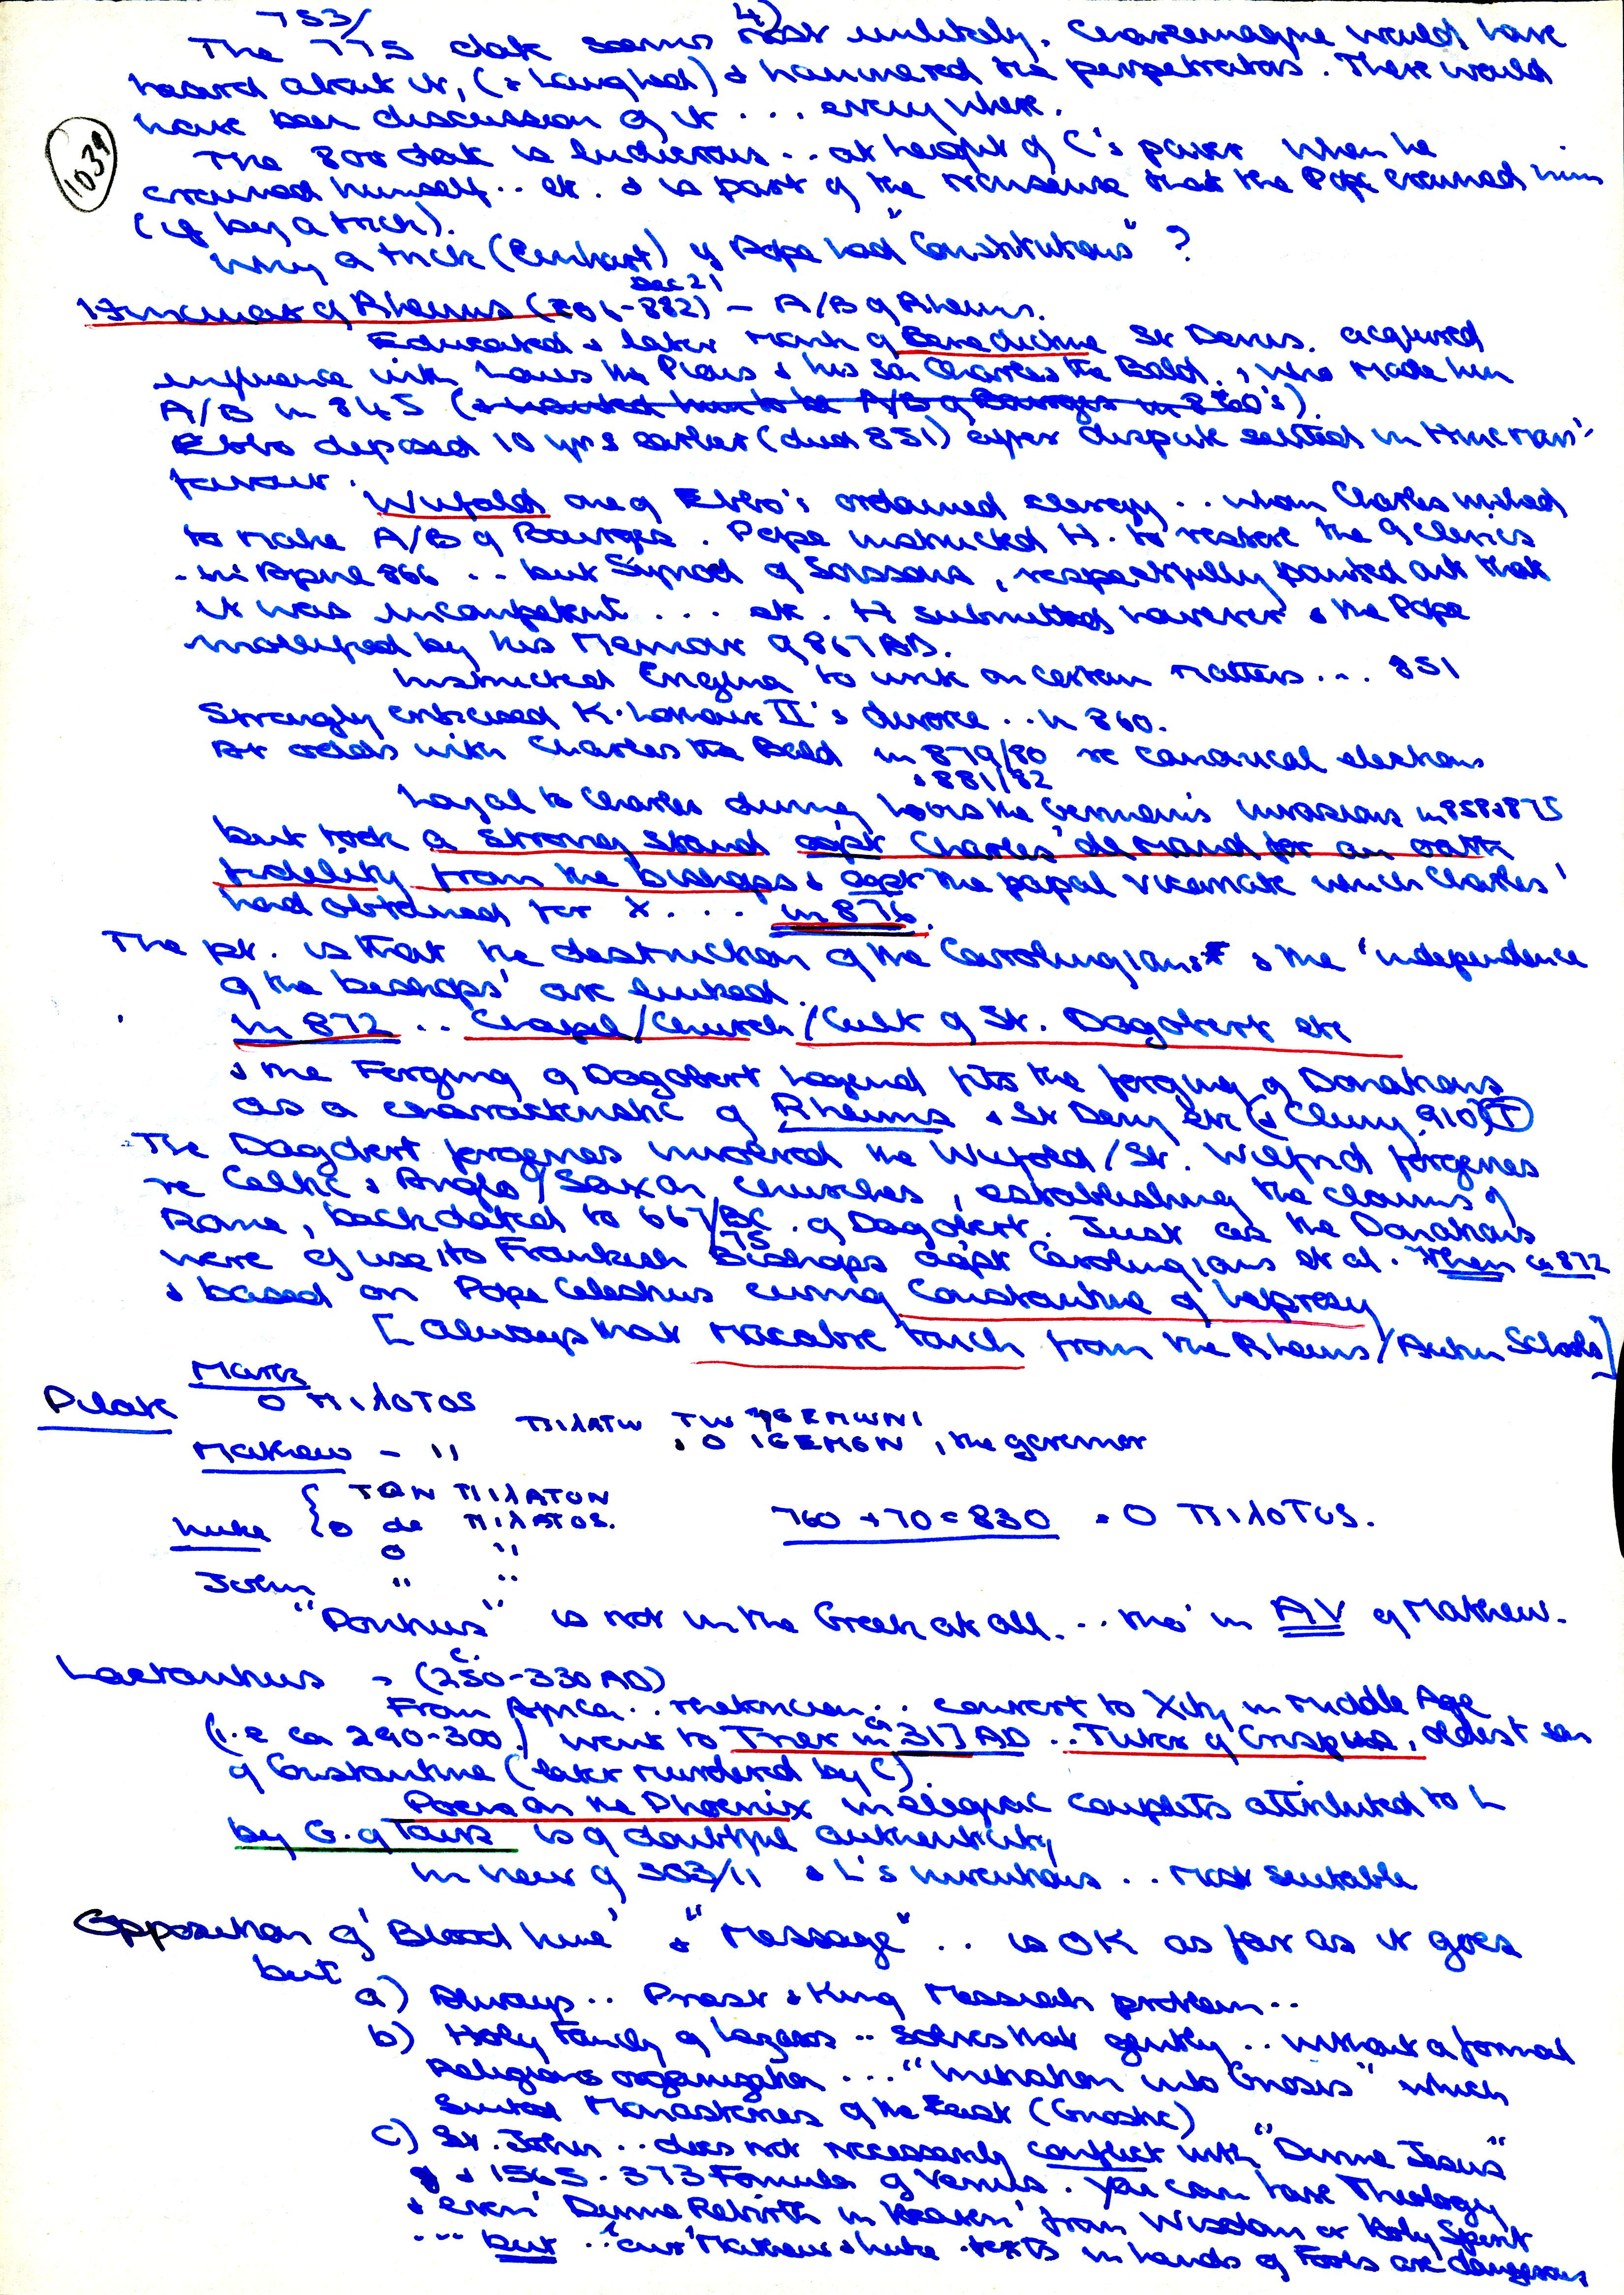 4)
753/
The 775 date seems most unlikely. Charlemagne would have
heard about it, (& laughed) & hammered the perpetrators. There would
have been discussion of it ... every where.
1039
The 800 date is ludicrous .. at height of C's power when he
crowned himself .. etc. & is part of the nonsense that the Pope crowned him
(if by a trick).
Why a trick (Einhart) if Pope had "Constitutions"?
Dec 21
Hincmar of Rheims (806-882) - A/B of Rheims.
Educated & later Monk of Benedictine St Denis. acquired
influence with Louis the Pious & his son Charles the Bald., who made him
A/B in 845 (& wanted him to be A/B of Bourges in 860's).
Ebbo deposed 10 yrs earlier (died 851) after dispute settled in Hincmar's
favour.
Wufald one of Ebbo's ordained clergy .. whom Charles wished
to make A/B of Bourges. Pope instructed H. to restore the 9 clerics
- in April 866 .. but Synod of Soissons, respectfully pointed out that
it was incompetent ... etc. H submitted however & the Pope
mollified by his Memoir of 867 AD.
Instructed Erigena to write on certain matters ... 851
Strongly criticised K. Lothair II's divorce .. in 860.
At odds with Charles the Bald in 879/80 re canonical elections
& 881/82
Loyal to Charles during Louis the German's invasions in 858 & 875
but took a strong stand agst Charles' demand for an oath
fidelity from the bishops & agst the papal vicariate which Charles'
had obtained for X .... in 876.
The pt. is that the destruction of the Carolingians & the 'independence
of the bishops' are linked.
In 872 .. Chapel/Church/Cult of St. Dagobert etc
& the Forging of Dagobert Legend fits the forging of Donations
as a characteristic of Rheims & St Deny etc (& Cluny 910) T
The Dagobert forgeries involved the Wufold/St. Wilfrid forgeries
re Celtic & Anglo/Saxon churches, establishing the claims of
Rome, backdated to 667/BC of Dagobert. Just as the Donations
75
were of use to Frankish Bishops agst Carolingians et al. Then ca 872
& based on Pope Celestius curing Constantine of leprosy
[Always that macabre touch from the Rheims/Autun Schools]
Pilate
Marks
O ΠΙλΟΤΟS
Mathew - "
ΠΙλΑΤω Τω ΗGΕΜωΝΙ
, Ο ΙGΕΜΟΝ, the governor
Luke { ΤΟΝ ΠΙλΑΤΟΝ
O de ΠΙλΑΤΟS.
760 + 70 = 830 . Ο ΠΙλΟΤΟS.
O "
John " "
"Pontius" is not in the Greek at all ... tho' in AV of Mathew.
Lactantius - (c. 250-330 AD)
From Africa .. rhetorician .. convert to Xity in Middle Age
(i.e ca 290-300) went to Trier in ca 317 AD .. Tutor of Crispus, oldest son
of Constantine (later murdered by C).
Poem on the Phoenix in elegiac couplets attributed to L
by G. of Tours is of doubtful authenticity
In view of 303/11 & L's inventions .. most suitable
Opposition of 'Blood line' & "Message" .. is OK as far as it goes
but
a) Always .. Priest & King Messiah problem ..
b) Holy Family of Lazarus .. solves that gently .. without a formal
Religious organization ... "Initiation into Gnosis" which
suited Monasteries of the East (Gnostic)
c) St. John .. does not necessarily conflict with "Divine Jesus"
& 1565.373 Formula of Venus. You can have Theology
& even 'Divine Rebirth in Heaven' from Wisdom or Holy Spirit
... but .. 'our' Mathew & Luke texts in hands of Fools are dangerous